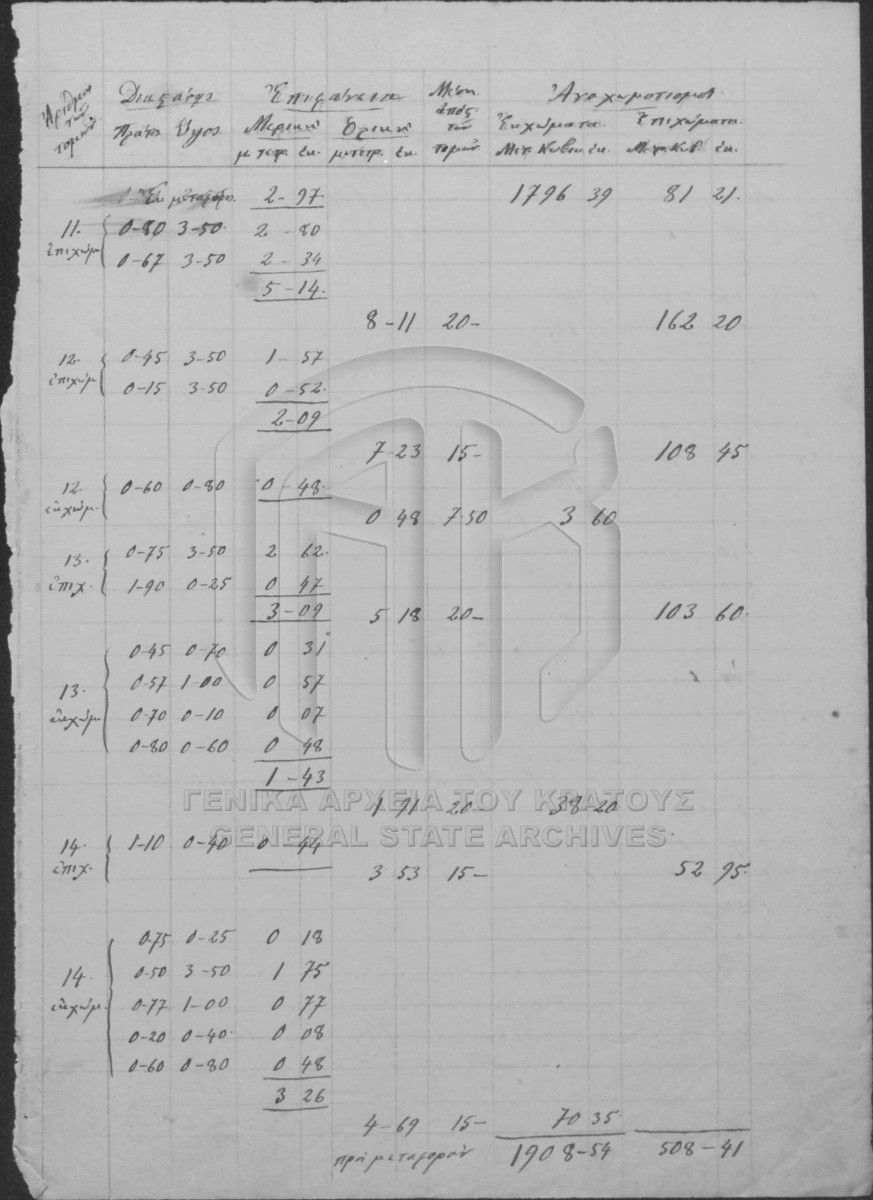 Ἀριθμὸς τῶν τομῶν
Διαστάσεις Ἐπιφάνεια Μέση ἀπόσ. τῶν τομῶν Ἀνοχωματισμοὶ
Πλάτος Ὕψος Μερικὴ Ὁλικὴ Ἐκχώματα Ἐπιχώματα
μ. τετρ. ἑκ. μ. τετρ. ἑκ. Μετρ. Κυβικ. ἑκ. Μετρ. Κυβ. ἑκ.
Ἐκ μεταφορ. 2-97. 1796 39 81 21.
11. ἐπιχώμ 0-80 3-50. 2-80
0-67 3-50 2-34
5-14.
8-11 20- 162 20
12. ἐπιχώμ 0-45 3-50 1-57
0-15 3-50 0-52.
2-09
7-23 15- 108 45
12. ἐκχώμ. 0-60 0-80 0-48.
0 48 7-50 3 60
13. ἐπιχ. 0-75 3-50 2 62.
1-90 0-25 0 47
3-09 5 18 20- 103 60.
0-45 0-70 0 31
13. ἐκχώμ 0-57 1-00 0 57
0-70 0-10 0 07
0-80 0-60 0 48
1-43
ΓΕΝΙΚΑ ΑΡΧΕΙΑ ΤΟΥ ΚΡΑΤΟΥΣ
1 91 20- 38-20
GENERAL STATE ARCHIVES
14. ἐπιχ. 1-10 0-40 0 44
3 53 15- 52 95.
0-75 0-25 0 18
14. ἐκχώμ. 0-50 3-50 1 75
0-77 1-00 0 77
0-20 0-40. 0 08
0-60 0-80 0 48
3 26
4-69 15- 70 35
πρὸς μεταφορὰν 1908-54 508-41